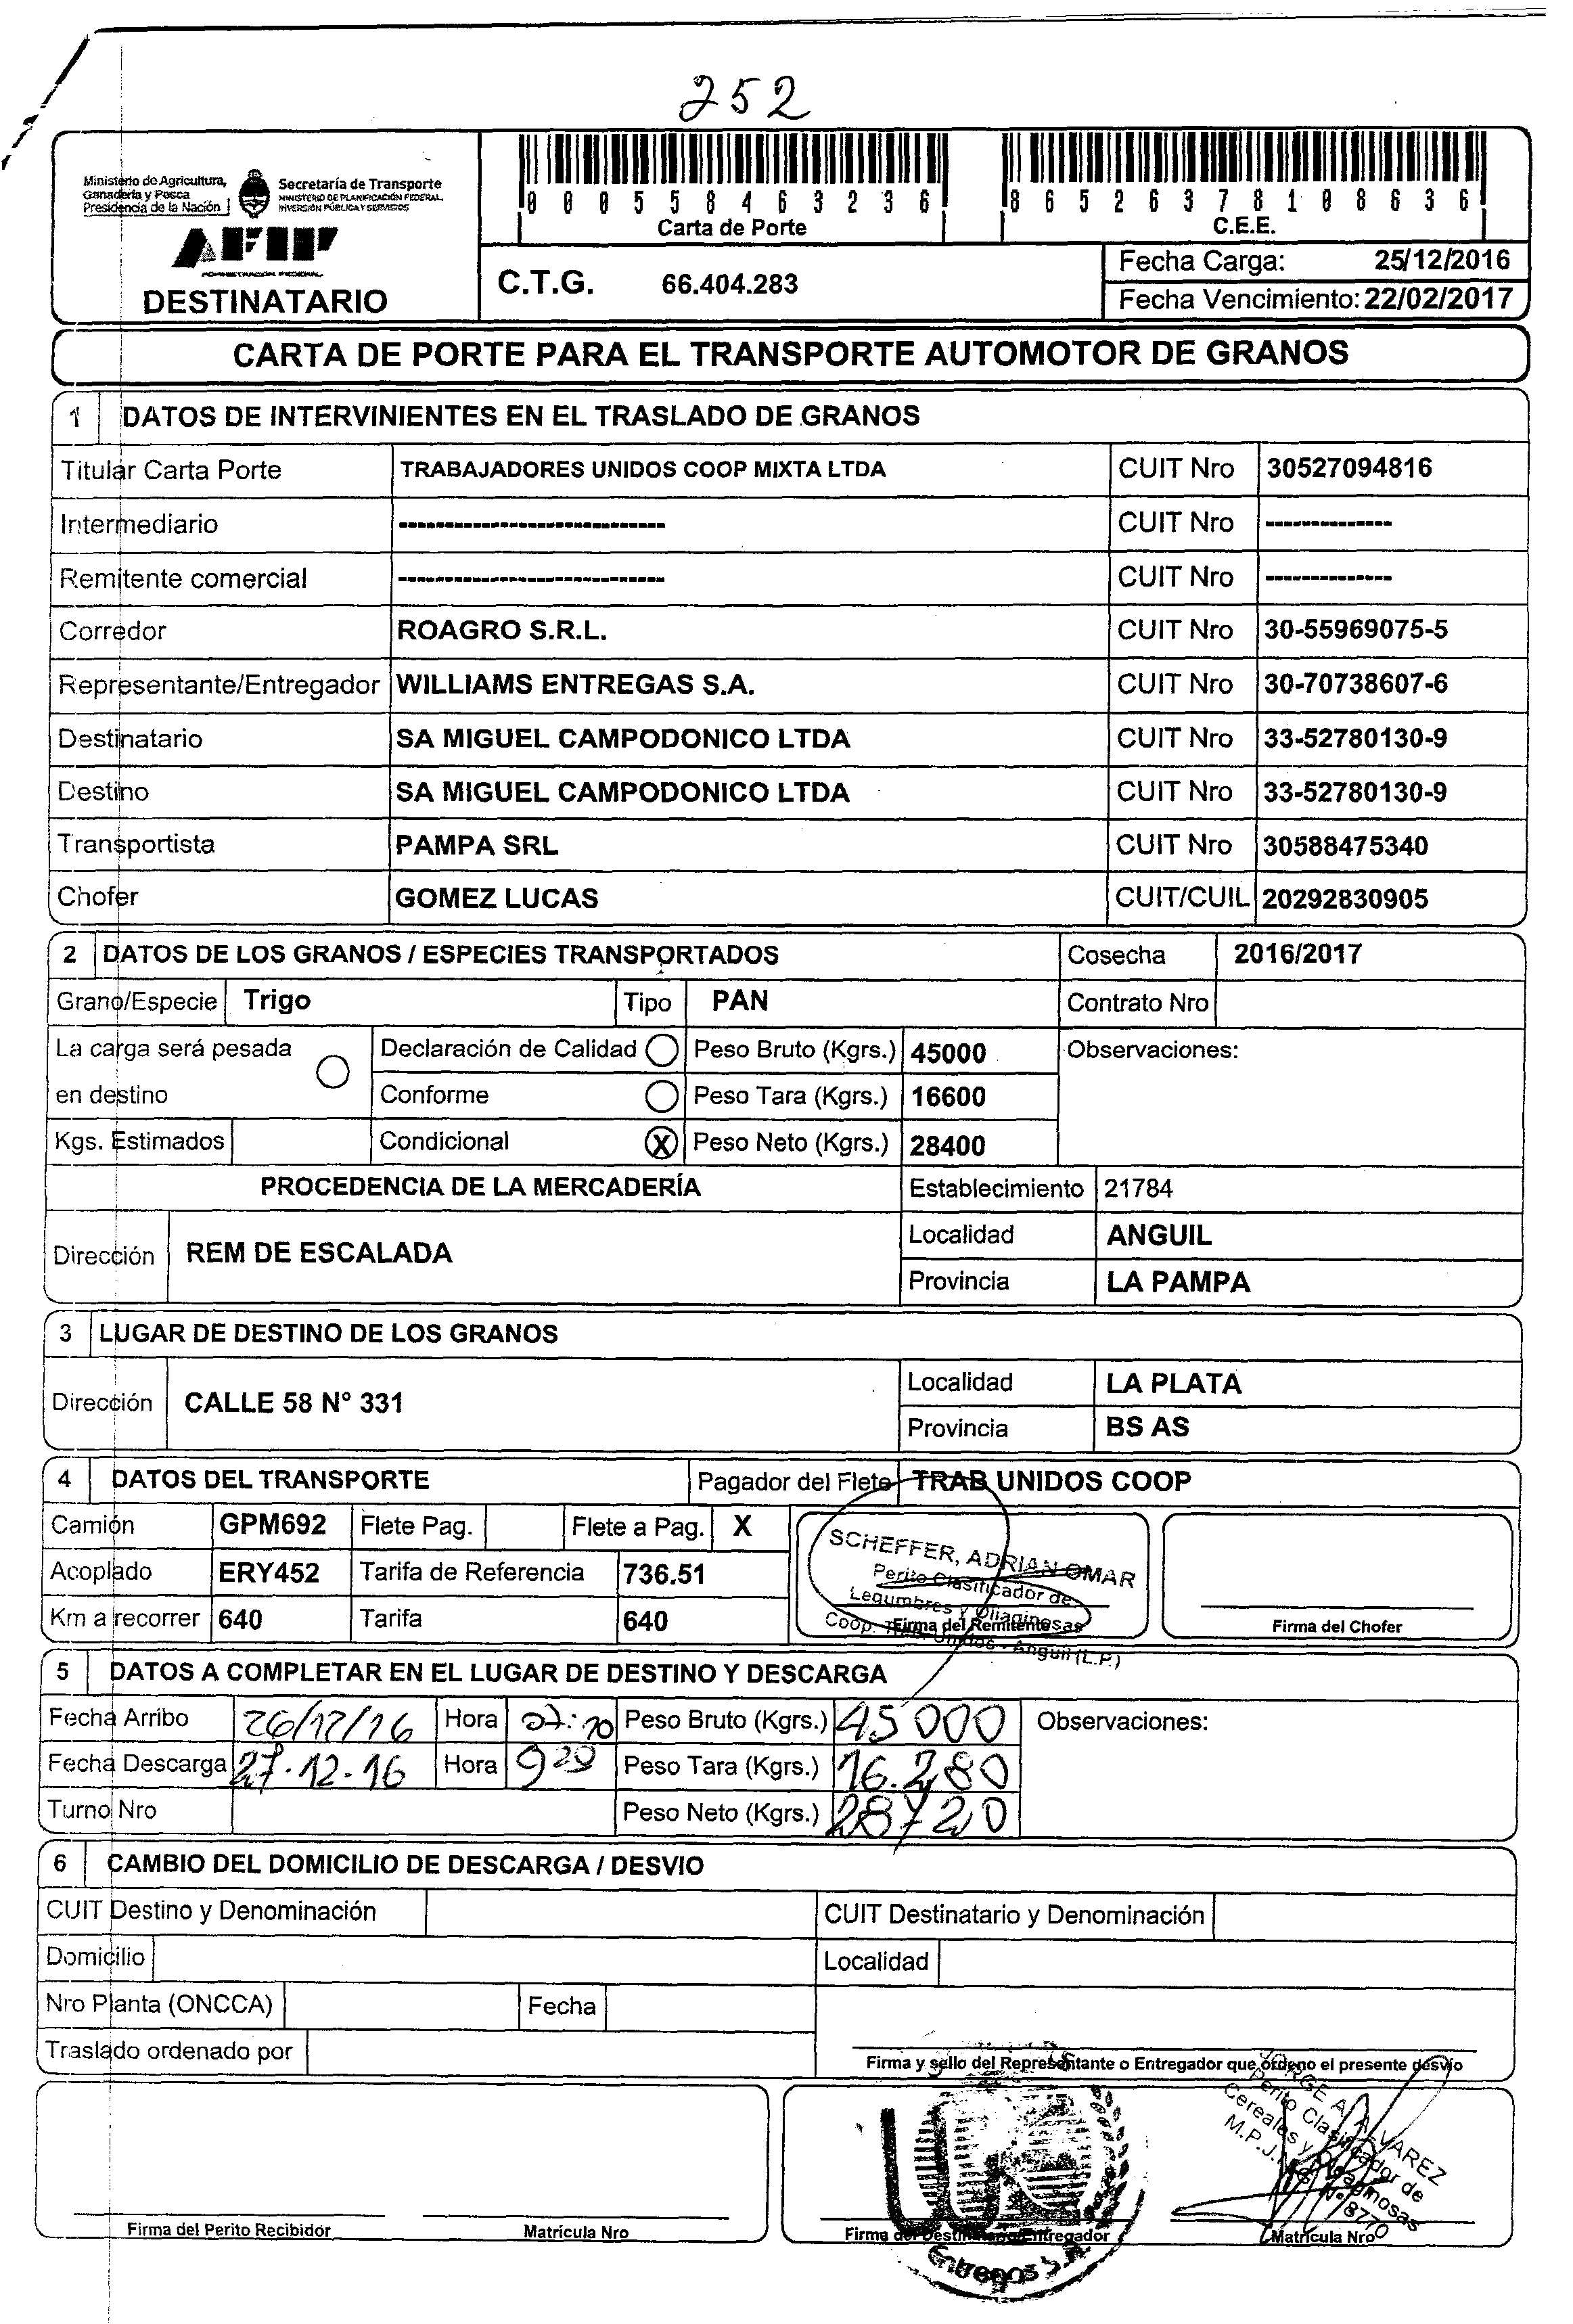 252
Ministerio de Agricultura,
Ganadería y Pesca
Presidencia de la Nación
Secretaría de Transporte
MINISTERIO DE PLANIFICACIÓN FEDERAL,
INVERSIÓN PÚBLICA Y SERVICIOS
AFIP
DESTINATARIO
000558463236
Carta de Porte
86526378108636
C.E.E.
C.T.G. 66.404.283
Fecha Carga: 25/12/2016
Fecha Vencimiento: 22/02/2017
CARTA DE PORTE PARA EL TRANSPORTE AUTOMOTOR DE GRANOS
1 DATOS DE INTERVINIENTES EN EL TRASLADO DE GRANOS
Titular Carta Porte TRABAJADORES UNIDOS COOP MIXTA LTDA CUIT Nro 30527094816
Intermediario ----------------------------- CUIT Nro --------------
Remitente comercial ----------------------------- CUIT Nro --------------
Corredor ROAGRO S.R.L. CUIT Nro 30-55969075-5
Representante/Entregador WILLIAMS ENTREGAS S.A. CUIT Nro 30-70738607-6
Destinatario SA MIGUEL CAMPODONICO LTDA CUIT Nro 33-52780130-9
Destino SA MIGUEL CAMPODONICO LTDA CUIT Nro 33-52780130-9
Transportista PAMPA SRL CUIT Nro 30588475340
Chofer GOMEZ LUCAS CUIT/CUIL 20292830905
2 DATOS DE LOS GRANOS / ESPECIES TRANSPORTADOS Cosecha 2016/2017
Grano/Especie Trigo Tipo PAN Contrato Nro
La carga será pesada en destino
Declaración de Calidad Peso Bruto (Kgrs.) 45000 Observaciones:
Conforme Peso Tara (Kgrs.) 16600
Kgs. Estimados Condicional X Peso Neto (Kgrs.) 28400
PROCEDENCIA DE LA MERCADERÍA Establecimiento 21784
Dirección REM DE ESCALADA Localidad ANGUIL
Provincia LA PAMPA
3 LUGAR DE DESTINO DE LOS GRANOS
Dirección CALLE 58 N° 331 Localidad LA PLATA
Provincia BS AS
4 DATOS DEL TRANSPORTE Pagador del Flete TRAB UNIDOS COOP
Camión GPM692 Flete Pag. Flete a Pag. X
Acoplado ERY452 Tarifa de Referencia 736.51
Km a recorrer 640 Tarifa 640
SCHEFFER, ADRIAN OMAR
Perito Clasificador de
Legumbres y Oliaginosas
Coop. Trab. Unidos - Anguil (L.P.)
Firma del Remitente
Firma del Chofer
5 DATOS A COMPLETAR EN EL LUGAR DE DESTINO Y DESCARGA
Fecha Arribo 26/12/16 Hora Peso Bruto (Kgrs.) 45000 Observaciones:
Fecha Descarga 27.12.16 Hora 9 20 Peso Tara (Kgrs.) 16.280
Turno Nro Peso Neto (Kgrs.) 28720
6 CAMBIO DEL DOMICILIO DE DESCARGA / DESVIO
CUIT Destino y Denominación CUIT Destinatario y Denominación
Domicilio Localidad
Nro Planta (ONCCA) Fecha
Traslado ordenado por
Firma y sello del Representante o Entregador que ordeno el presente desvio
JORGE A. ALVAREZ
Perito Clasificador de
Cereales y Oleaginosas
Firma del Perito Recibidor Matrícula Nro
Matrícula Nro
Entregas S.A.